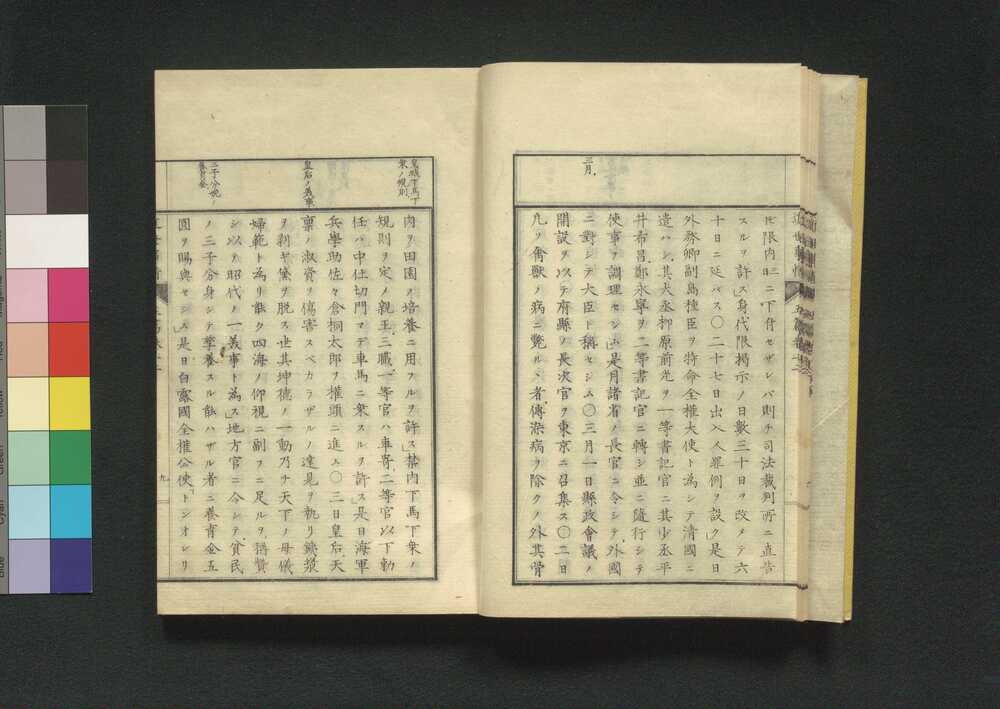 三月
其限内ニ下付セザレバ則チ司法裁判所ニ直告
スルヲ許ス身代限掲示ノ日數三十日ヲ改メテ六
十日ニ延バス〇二十七日出入人罪例ヲ設ク是日
外務卿副島種臣ヲ特命全權大使ト為シテ清國ニ
遣ハシ其大丞柳原前光ヲ一等書記官ニ其少丞平
井希昌鄭永寧ヲ二等書記官ニ轉シ並ニ隨行シテ
使事ヲ調理セシム」是月諸省ノ長官ニ令シテ外國
ニ對シテ大臣ト稱セシム〇三月一日縣政會議ノ
開設ヲ以テ府縣ノ長次官ヲ東京ニ召集ス〇二日
凡ソ禽獸ノ病ニ斃ルヽ者傳染病ヲ除クノ外其骨
皇城下馬下
乗ノ規則
皇后ノ美事
三子分娩ノ
養育金
肉ヲ田園ノ培養ニ用フルヲ許ス」禁内下馬下乗ノ
規則ヲ定メ親王三職一等官ハ車寄二等官以下勅
任ハ中仕切門マデ車馬ニ乗スルヲ許ス」是日海軍
兵學助佐々倉桐太郎ヲ權頭ニ進ム〇三日皇后天
稟ノ淑資ヲ傷害スベカラザルノ達見ヲ執リ鐵漿
ヲ剥ギ黛ヲ脱ス世其坤德ノ一動乃チ天下ノ母儀
婦範ト為リ能ク四海ノ仰視ニ副フニ足ルヲ稱贊
シ以テ昭代ノ一美事ト為ス」地方官ニ令シテ貧民
ノ三子分身シテ擧養スル能ハザル者ニ養育金五
圓ヲ賜與セシム」是日白露國全權公使「ドンオレリ